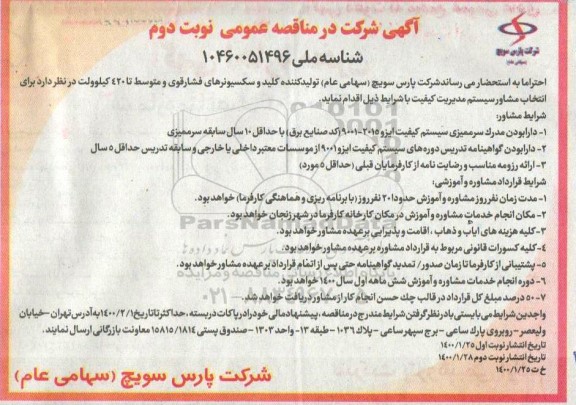 آگهی شرکت در مناقصه عمومی نوبت دوم
شرکت پارس سویچ
(سهامی عام)
شناسه ملی ۱۰۴۶۰۰۵۱۴۹۶
احتراما به استحضار می رساند شرکت پارس سویچ (سهامی عام) تولیدکننده کلید و سکسیونرهای فشارقوی و متوسط تا ۴۲۰ کیلوولت در نظر دارد برای
انتخاب مشاور سیستم مدیریت کیفیت با شرایط ذیل اقدام نماید.
شرایط مشاور:
۱- دارا بودن مدرک سرممیزی سیستم کیفیت ایزو ۲۰۱۵-۹۰۰۱ (کد صنایع برق) با حداقل ۱۰ سال سابقه سرممیزی
۲- دارا بودن گواهینامه تدریس دوره های سیستم کیفیت ایزو ۹۰۰۱ از موسسات معتبر داخلی یا خارجی و سابقه تدریس حداقل ۵ سال
۳- ارائه رزومه مناسب و رضایت نامه از کارفرمایان قبلی (حداقل ۵ مورد)
شرایط قرارداد مشاوره و آموزشی:
۱- مدت زمان نفرروز مشاوره و آموزش حدودا ۲۰ نفرروز (با برنامه ریزی و هماهنگی کارفرما) خواهد بود.
۲- مکان انجام خدمات مشاوره و آموزش در مکان کارخانه کارفرما در شهر زنجان خواهد بود.
۳- کلیه هزینه های ایاب و ذهاب، اقامت و پذیرایی بر عهده مشاور خواهد بود.
۴- کلیه کسورات قانونی مربوط به قرارداد مشاوره بر عهده مشاور خواهد بود.
۵- پشتیبانی از کارفرما تا زمان صدور/ تمدید گواهینامه حتی پس از اتمام قرارداد بر عهده مشاور خواهد بود.
۶- دوره انجام خدمات مشاوره و آموزش شش ماهه اول سال ۱۴۰۰ خواهد بود.
۷- ۵۰ درصد مبلغ کل قرارداد در قالب چک حسن انجام کار از مشاور دریافت خواهد شد.
واجدین شرایط می بایستی با در نظر گرفتن شرایط مندرج در مناقصه، پیشنهاد مالی خود را در پاکات دربسته، حداکثر تا تاریخ ۱۴۰۰/۲/۱ به آدرس تهران - خیابان
ولیعصر - روبروی پارک ساعی - برج سپهر ساعی - پلاک ۱۰۳۶ - طبقه ۱۳- واحد ۱۳۰۳ - صندوق پستی ۱۵۸۱۵/۱۸۱۴ معاونت بازرگانی ارسال نمایند.
تاریخ انتشار نوبت اول ۱۴۰۰/۱/۲۵
تاریخ انتشار نوبت دوم ۱۴۰۰/۱/۲۸
خ ت ۱۴۰۰/۱/۲۵
شرکت پارس سویچ (سهامی عام)